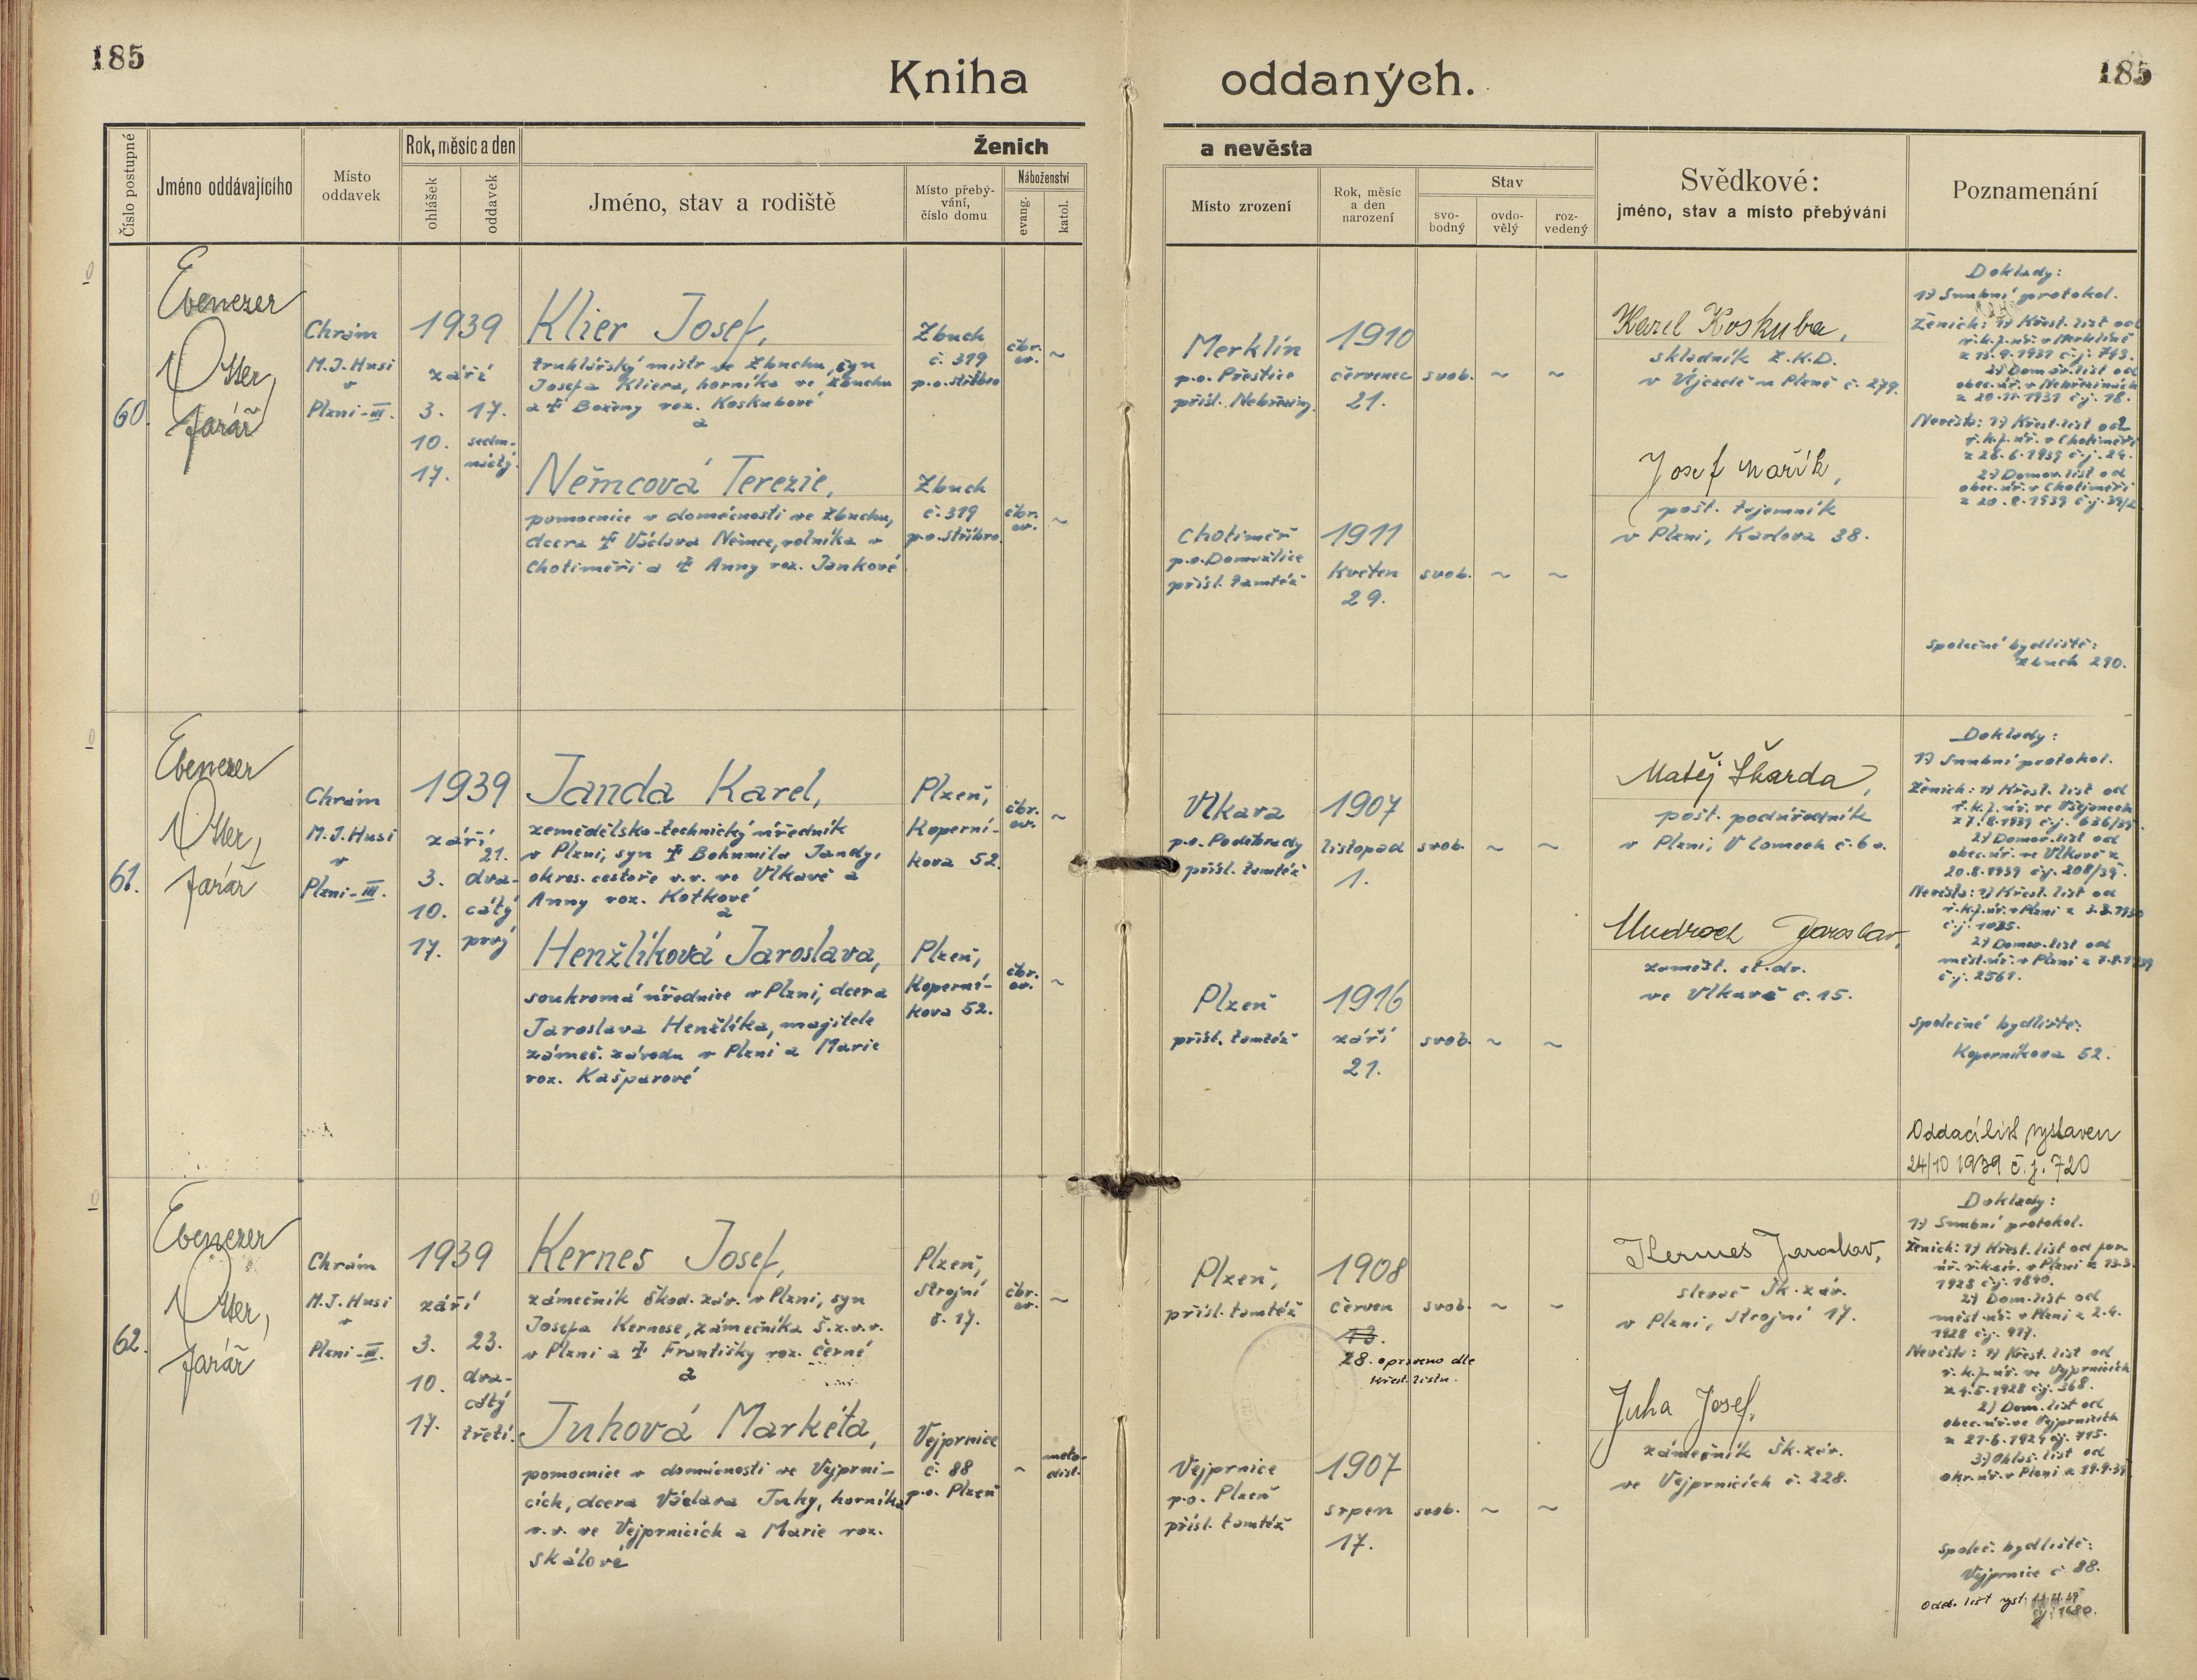 185
185
Kniha oddaných.
Číslo postupné
Jméno oddávajícího
Místo
oddavek
Rok, měsíc a den
ohlášek
oddavek
Ženich
a nevěsta
Jméno, stav a rodiště
Místo přebý-
vání,
číslo domu
Náboženství
evang.
katol.
Místo zrození
Rok, měsíc
a den
narození
Stav
svo-
bodný
ovdo-
vělý
roz-
vedený
Svědkové:
jméno, stav a místo přebývání
Poznamenání
60.
Ebenezer
Otter,
farář
Chrám
M.J.Husi
v
Plzni-III.
1939
září
3. 17.
10. sedm-
náctý.
17.
Klier Josef,
truhlářský mistr ve Zbuchu, syn
Josefa Kliera, horníka ve Zbuchu
a † Boženy roz. Koskubové
a
Němcová Terezie,
pomocnice v domácnosti ve Zbuchu,
dcera † Václava Němce, rolníka v
Chotiměři a † Anny roz. Jankové
Zbuch
č. 319
p.o. Stříbro
Zbuch
č. 319
p.o. Stříbro
čbr.
ev. ~
čbr.
ev. ~
Merklín
p.o. Přeštice
přísl. Nebřeziny
1910
červenec
21.
svob. ~ ~
Chotiměř
p.o. Domažlice
přísl. tamtéž
1911
květen
29.
svob. ~ ~
Karel Koskuba,
skladník Z.K.D.
v Újezdě u Plzně č. 279.
Josef Mařík,
pošt. tajemník
v Plzni, Karlova 38.
Doklady:
1) Snubní protokol.
Ženich: 1) Křest. list od
ř.k.f.úř. v Merklíně
2) Domov. list od
obec. úř. v Nebřezinách
z 20.11.1931 č.j. 18.
Nevěsta: 1) Křest. list od
ř.k.f. úř. v Chotiměři
z 26.6.1939 č.j. 24.
2) Domov. list od
obec. úř. v Chotiměři
z 20.8.1939 č.j. 39/2
Společné bydliště:
Zbuch 290.
61.
Ebenezer
Otter,
farář
Chrám
M.J.Husi
v
Plzni-III.
1939
září
21.
3. dva-
10. cátý
17. prvý
Janda Karel,
zemědělsko-technický úředník
v Plzni, syn † Bohumila Jandy,
okres. cestáře v.v. ve Vlkavě a
Anny roz. Kotkové
a
Henžlíková Jaroslava,
soukromá úřednice v Plzni, dcera
Jaroslava Henžlíka, majitele
zámeč. závodu v Plzni a Marie
roz. Kašparové
Plzeň,
Koperní-
kova 52.
Plzeň,
Koperní-
kova 52.
čbr.
ev. ~
čbr.
ev. ~
Vlkava
p.o. Poděbrady
přísl. tamtéž
1907
listopad
1.
svob. ~ ~
Plzeň
přísl. tamtéž
1916
září
21.
svob. ~ ~
Matěj Škarda,
pošt. podúředník
v Plzni, V lomech č. 6a.
Mudroch Jaroslav,
zaměst. st. dr.
ve Vlkavě č. 15.
Doklady:
1) Snubní protokol.
Ženich: 1) Křest. list od
z 7.8.1939 č.j. 636/39.
2) Domov. list od
obec. úř. ve Vlkavě z
20.8.1939 č.j. 208/39.
Nevěsta: 1) Křest. list od
ř.k.f.úř. v Plzni z
č.j. 1035.
2) Domov. list od
měst. úř. v Plzni z 7.8.1939
č.j. 2561.
Společné bydliště:
Koperníkova 52.
Oddací list vystaven
24/10 1939 č.j. 720
62.
Ebenezer
Otter,
farář
Chrám
M.J.Husi
v
Plzni-III.
1939
září
3. 23.
10. dva-
cátý
17. třetí.
Kernes Josef,
zámečník Škod. záv. v Plzni, syn
Josefa Kernese, zámečníka Š.z.v.v.
v Plzni a † Františky roz. Černé
a
Juhová Markéta,
pomocnice v domácnosti ve Vejprni-
cích, dcera Václava Juhy, horníka
v.v. ve Vejprnicích a Marie roz.
Skálové
Plzeň,
Strojní
č. 17.
Vejprnice
č. 88
p.o. Plzeň
čbr.
ev. ~
~ meto-
dist.
Plzeň,
přísl. tamtéž
1908
červen
13.
28. opraveno dle
křest. listu.
svob. ~ ~
Vejprnice
p.o. Plzeň
přísl. tamtéž
1907
srpen
17.
svob. ~ ~
Kernes Jaroslav,
slevač Šk. záv.
v Plzni, Strojní 17.
Juha Josef,
zámečník Šk. záv.
ve Vejprnicích č. 228.
Doklady:
1) Snubní protokol.
Ženich: 1) Křest. list od
1928 č.j. 1840.
2) Dom. list od
měst. úř. v Plzni z 2.4.
1928 č.j. 917.
Nevěsta: 1) Křest. list od
ř.k.f. úř. ve Vejprnicích
z 4.5.1928 č.j. 368.
2) Dom. list od
obec. úř. ve Vejprnicích
3) Ohlaš. list od
okr. úř. v Plzni z 19.9.39
Společ. bydliště:
Vejprnice č. 88.
Odd. list vyst.